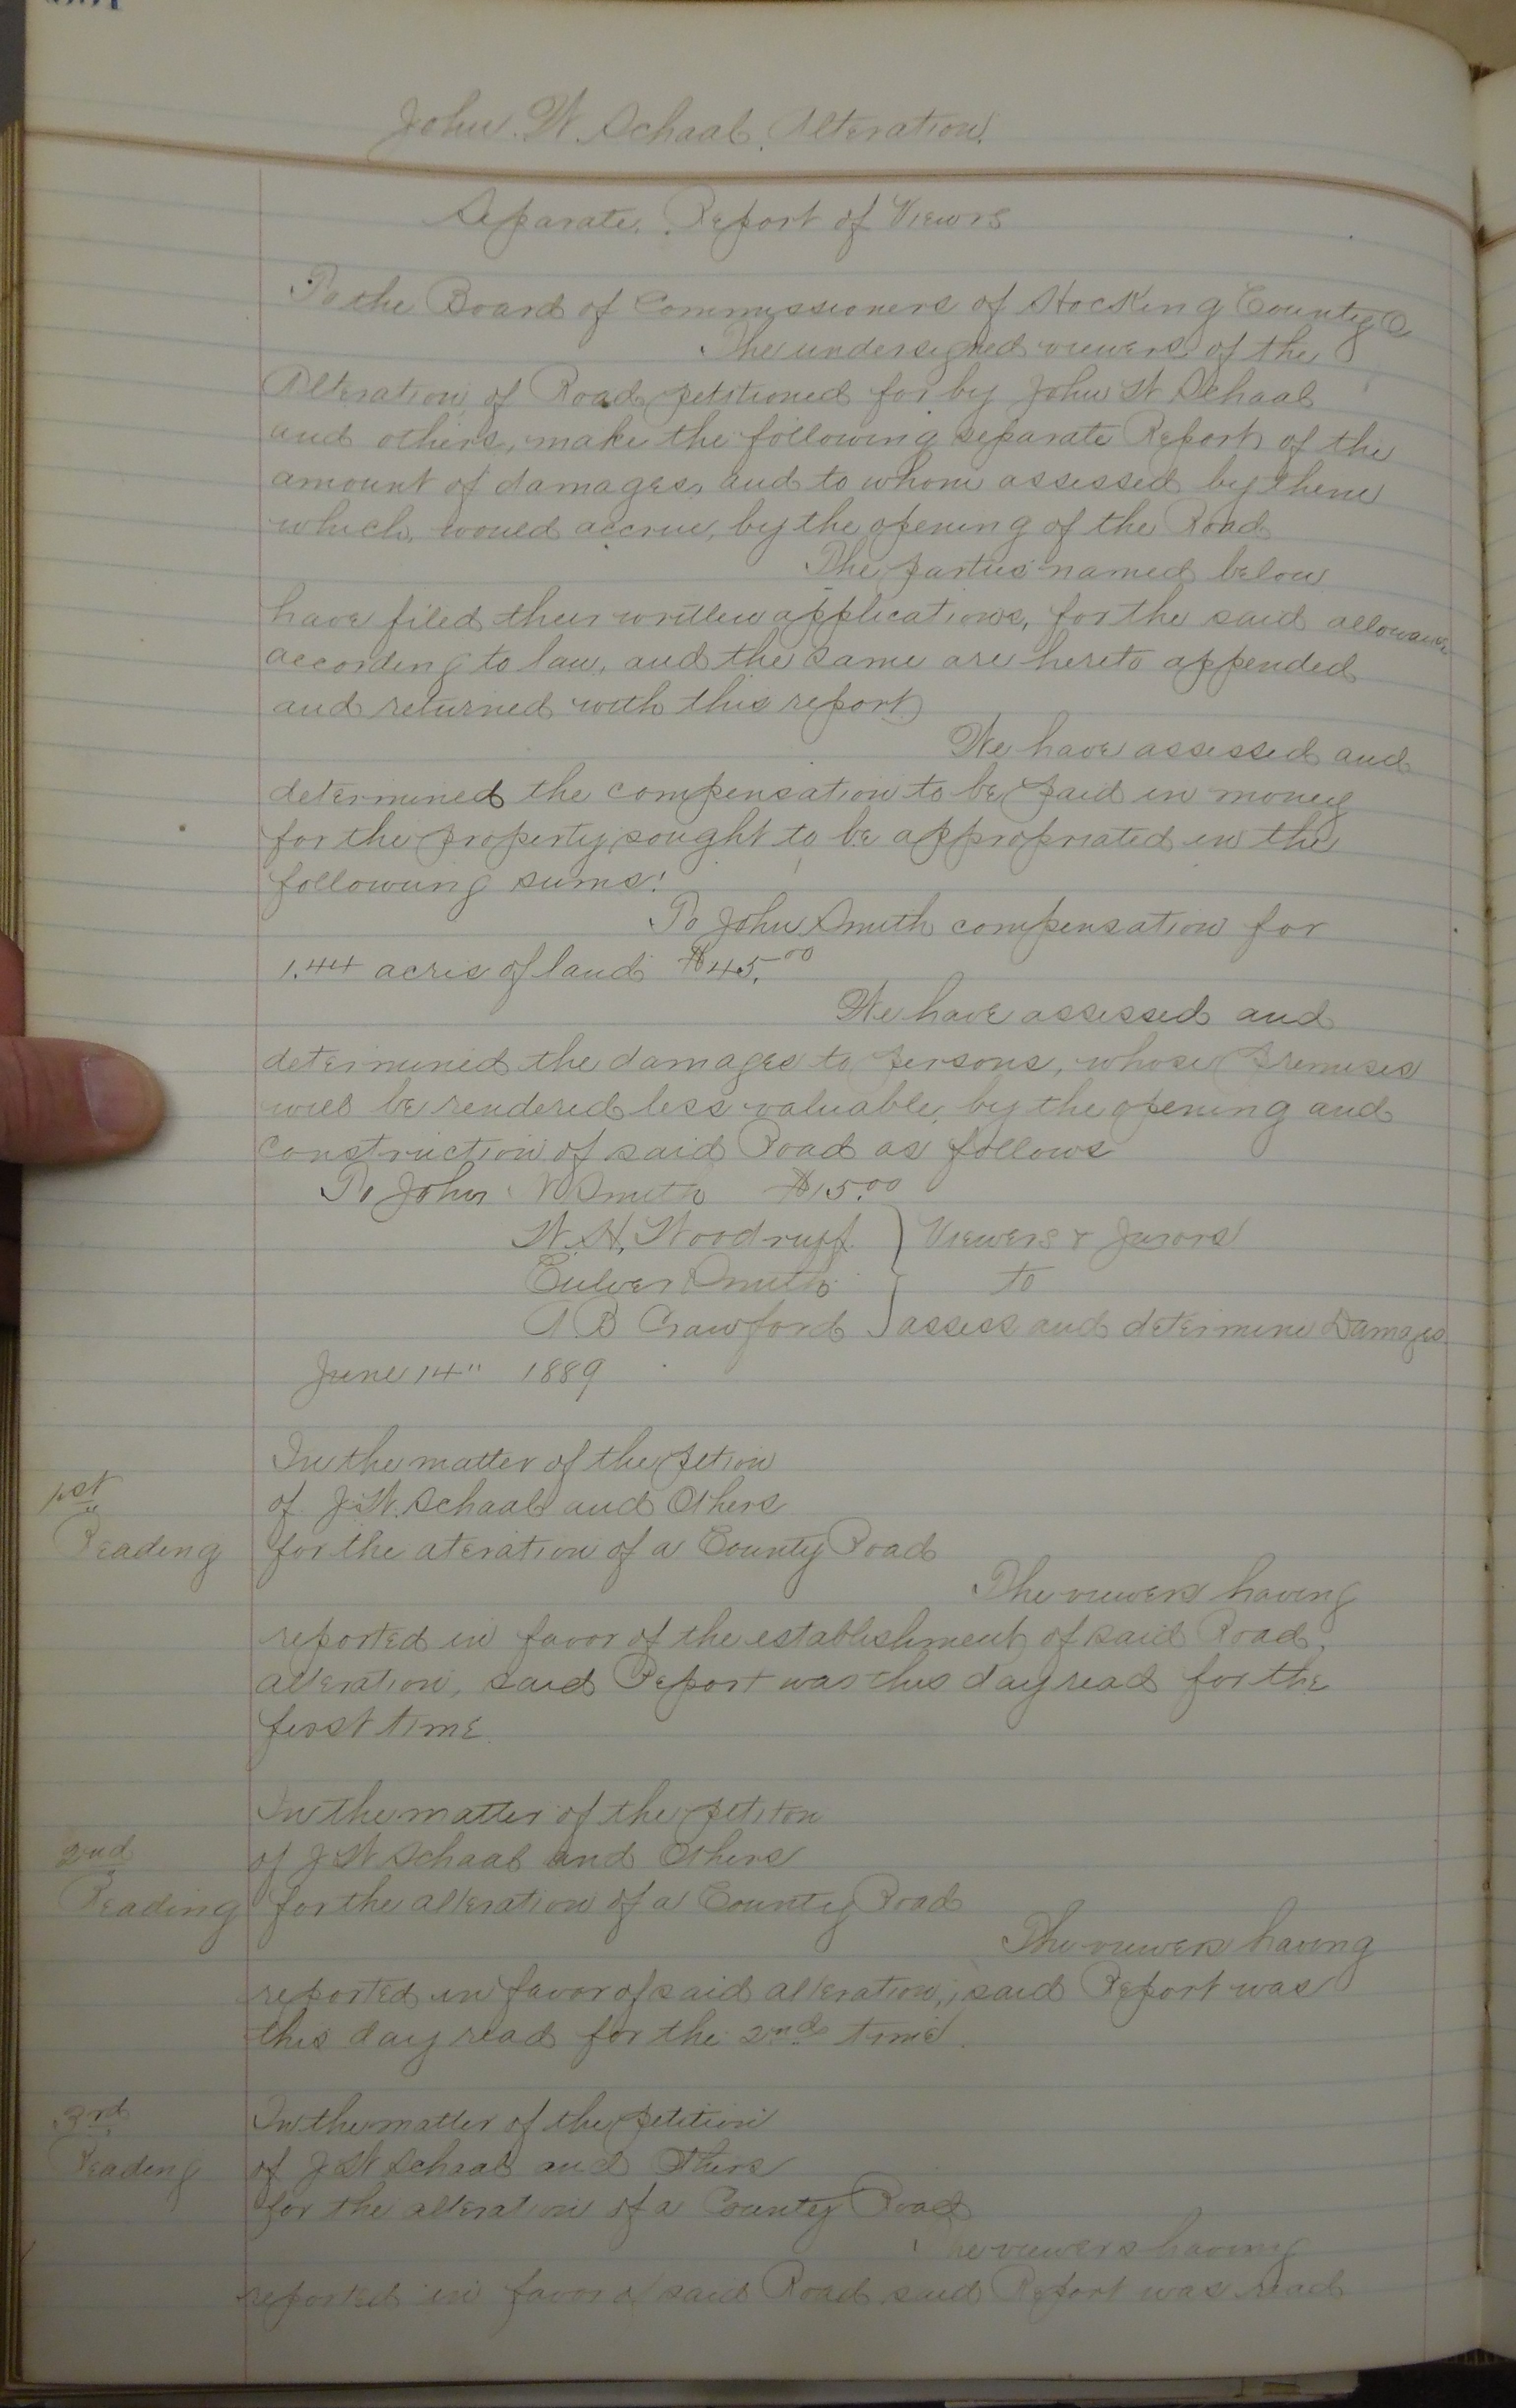 John. W. Schaal. Alteration.
Separate. Report of Viewrs
To the Board of Commissioners of Hocking County O
The undersigned viewers of the
Alteration of Road petitioned for by John W Schaal
and others, make the following separate Report of the
amount of damages, and to whom assessed by them
which, would accrue, by the opening of the Road
The parties named below
have filed their written applications, for the said allowance
according to law, and the same are hereto appended
and returned with this report
We have assessed and
determined the compensation to be paid in money
for the property sought to be appropriated in the
following sums:
To John Smith compensation for
1.44 acres of land $45.00
We have assessed and
determined the damages to persons, whose premises
will be rendered less valuable, by the opening and
construction of said Road as follows
To John Smith $15.00
W. H. Woodruff } Viewers & Jurors
Culver Smith } to
A B Crawford } assess and determine Damages
June 14" 1889
In the matter of the petion
1st
of J. W. Schaal and Others
Reading
for the ateration of a County Road
The viewers having
reported in favor of the establishment of said Road,
alteration, said Report was this day read for the
first time
In the matter of the petiton
2nd
of J W Schaal and Others
Reading
for the alteration of a County Road
The viewers having
reported in favor of said alteration, said Report was
this day read for the 2nd time
3rd
In the matter of the petition
Reading
of J W Schaal and Others
for the alteration of a County Road
The viewers having
reported in favor of said Road said Report was read